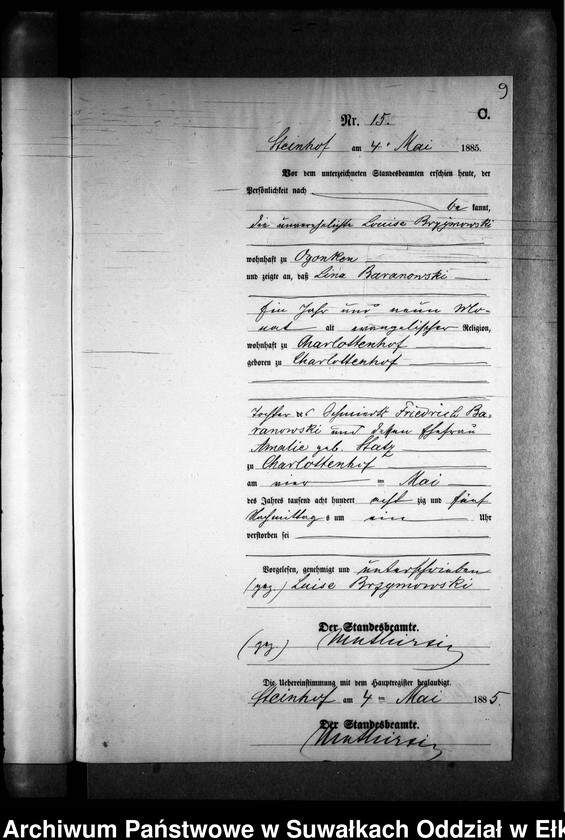 9
C.
Nr. 15.
Steinhof am 4. Mai 1885.
Vor dem unterzeichneten Standesbeamten erschien heute, der
Persönlichkeit nach
be kannt,
die unverehelichte Louise Brzymowski
wohnhaft zu Ogonken
und zeigte an, daß Lina Baranowski
Ein Jahr und neun Mo-
nat alt evangelischer Religion,
wohnhaft zu Charlottenhof
geboren zu Charlottenhof
Tochter des Schmieds Friedrich Ba-
ranowski und dessen Ehefrau
Amalie geb. Statz
zu Charlottenhof
am vier ten Mai
des Jahres tausend acht hundert acht zig und fünf
Nachmittags um ein Uhr
verstorben sei
Vorgelesen, genehmigt und unterschrieben
(gez.) Luise Brzymowski
Der Standesbeamte.
(gez.)
Die Uebereinstimmung mit dem Hauptregister beglaubigt.
Steinhof am 4 ten Mai 1885.
Der Standesbeamte.
Archiwum Państwowe w Suwałkach Oddział w Ełk